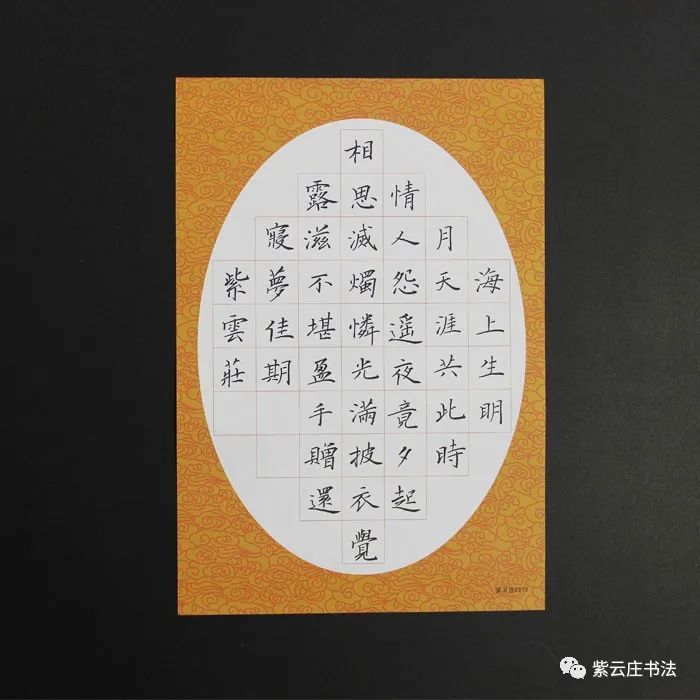 海上生明
月天涯共此時
情人怨遥夜竟夕起
相思滅燭憐光滿披衣覺
露滋不堪盈手贈還
寢夢佳期
紫雲莊
紫云庄书法